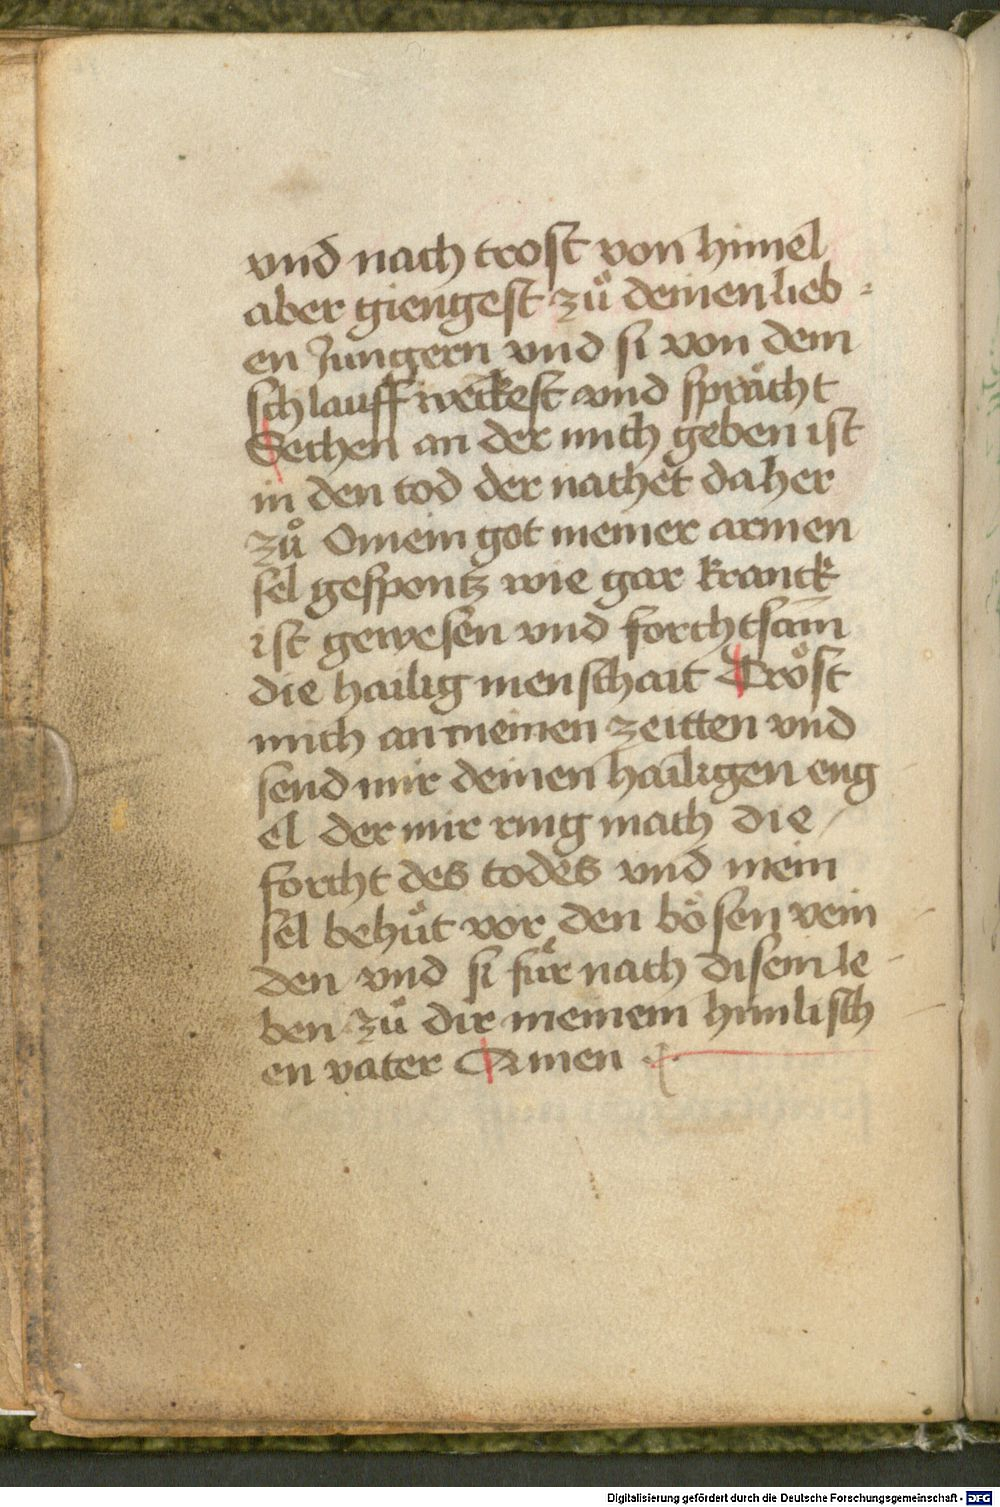 vnd nach trost von himel
aber giengest zů deinen lieb
en Jungern vnd si von dem
schlauff weckest vnd sprächt
Sechen an der mich geben ist
in den tod der nachet daher
zů O mein got meiner armen
sel gespontz wie gar kranck
ist gewesen vnd forchtsam
die hailig menschait Tröst
mich an meinen zeitten vnd
send mir deinen hailigen eng
el der mir ring mach die
forcht des todes vnd mein
sel behüt vor den bösen vein
den vnd si für nach disem le
ben zů dir meinem himlisch
en vater Amen
Digitalisierung gefördert durch die Deutsche Forschungsgemeinschaft - DFG